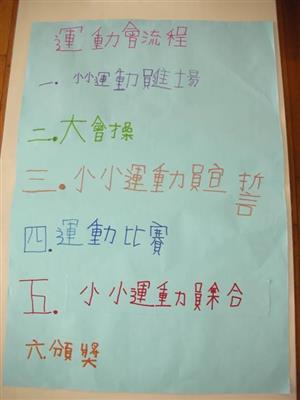 運動會流程
一.小小運動員進場
二.大會操
三.小小運動員宣誓
四.運動比賽
五.小小運動員集合
六.頒獎